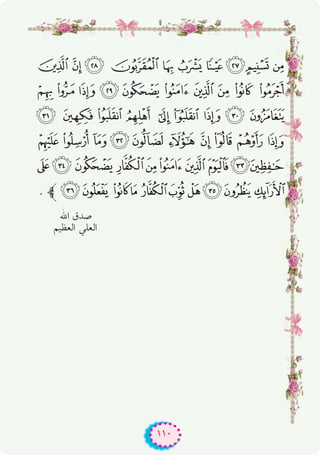 مِن تَسْنِيمٍ ٢٧ عَيْنًا يَشْرَبُ بِهَا الْمُقَرَّبُونَ ٢٨ إِنَّ الَّذِينَ
أَجْرَمُوا كَانُوا مِنَ الَّذِينَ ءَامَنُوا يَضْحَكُونَ ٢٩ وَإِذَا مَرُّوا بِهِمْ
يَتَغَامَزُونَ ٣٠ وَإِذَا انقَلَبُوا إِلَىٰ أَهْلِهِمُ انقَلَبُوا فَكِهِينَ ٣١
وَإِذَا رَأَوْهُمْ قَالُوا إِنَّ هَٰؤُلَاءِ لَضَالُّونَ ٣٢ وَمَا أُرْسِلُوا عَلَيْهِمْ
حَافِظِينَ ٣٣ فَالْيَوْمَ الَّذِينَ ءَامَنُوا مِنَ الْكُفَّارِ يَضْحَكُونَ ٣٤ عَلَى
الْأَرَائِكِ يَنظُرُونَ ٣٥ هَلْ ثُوِّبَ الْكُفَّارُ مَا كَانُوا يَفْعَلُونَ ٣٦ ﴾ .
صدق الله
العلي العظيم
١١٠